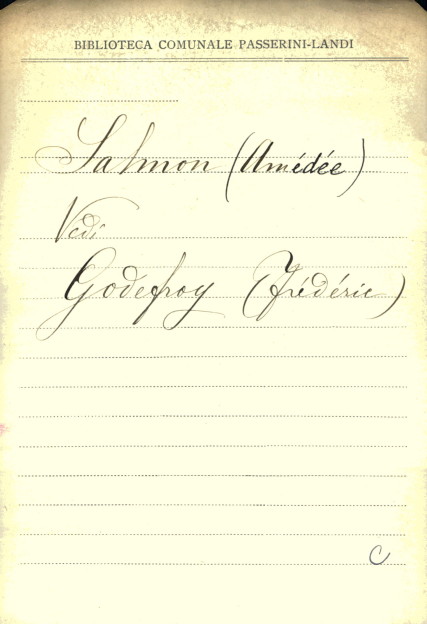 BIBLIOTECA COMUNALE PASSERINI-LANDI
Salmon (Amédée)
Vedi
Godefroy (Frédéric)
C